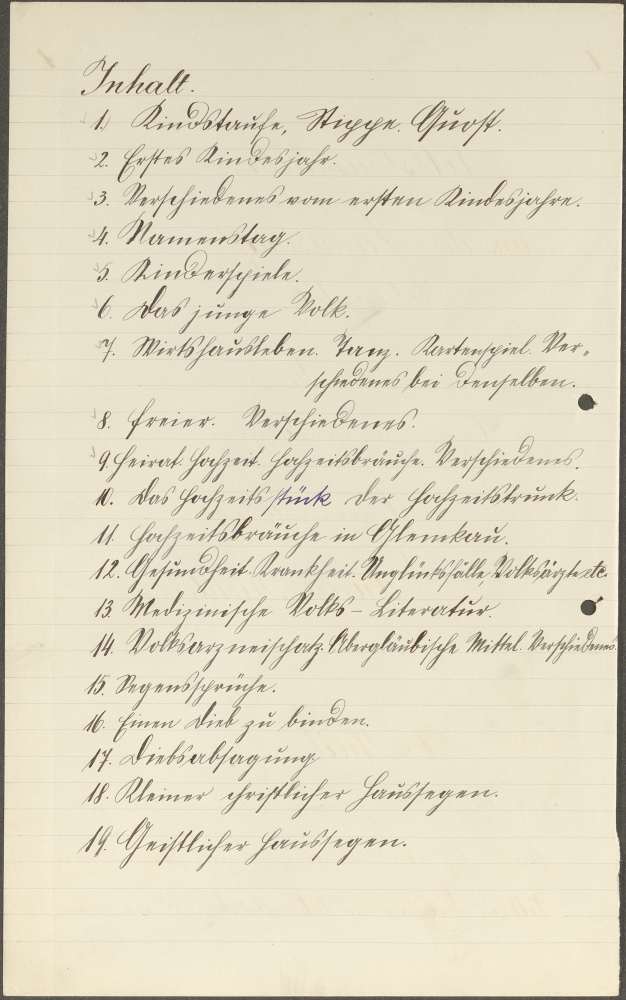 Inhalt.
1. Kindstaufe, Stippe. Quost.
2. Erstes Kindesjahr.
3. Verschiedenes vom ersten Kindesjahre.
4. Namenstag.
5. Kinderspiele.
6. Das junge Volk.
7. Wirtshausleben. Tanz. Kartenspiel. Ver-
schiedenes bei denselben.
8. Freier. Verschiedenes.
9. Heirat. Hochzeit. Hochzeitsbräuche. Verschiedenes.
10. Das Hochzeitsstück der Hochzeitstrunk.
11. Hochzeitsbräuche in Glemkau.
12. Gesundheit. Krankheit. Unglücksfälle, Volksärzte etc.
13. Medizinische Volks-Literatur.
14. Volksarzneischatz. Abergläubische Mittel. Verschiedenes.
15. Segenssprüche.
16. Einen Dieb zu binden.
17. Diebsabsagung
18. Kleiner christlicher Haussegen.
19. Geistlicher Haussegen.